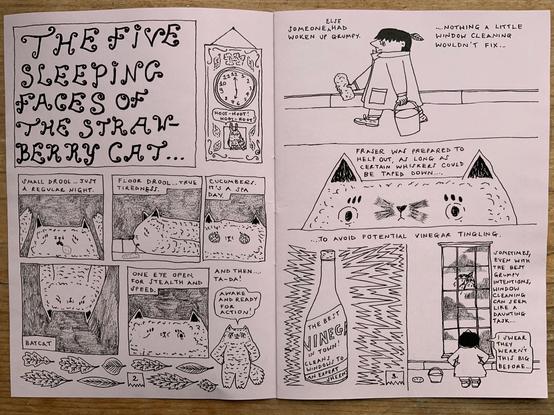 THE FIVE
SLEEPING
FACES OF
THE STRAW-
BERRY CAT...
HOOT-HOOT!
HOOT-HOOT!
SMALL DROOL...JUST
A REGULAR NIGHT.
FLOOR DROOL...TRUE
TIREDNESS.
CUCUMBERS.
IT'S A SPA
DAY.
BATCAT
ONE EYE OPEN,
FOR STEALTH AND
SPEED.
AND THEN...
TA-DA!
AWAKE AND
READY
FOR
ACTION!
2
ELSE
SOMEONE HAD
WOKEN UP GRUMPY.
...NOTHING A LITTLE
WINDOW CLEANING
WOULDN'T FIX...
FRASER WAS PREPARED TO
HELP OUT, AS LONG AS
CERTAIN WHISKERS COULD
BE TAPED DOWN....
...TO AVOID POTENTIAL VINEGAR TINGLING.
THE BEST
VINEG
IN TOWN!
CLEANS
WINDOWS TO
AN EXPERT
SHEEN
SOMETIMES,
EVEN WITH
THE BEST
GRUMPY
INTENTIONS,
WINDOW
CLEANING
CAN SEEM
LIKE A
DAUNTING
TASK...
I SWEAR
THEY
WEREN'T
THIS BIG
BEFORE...
3